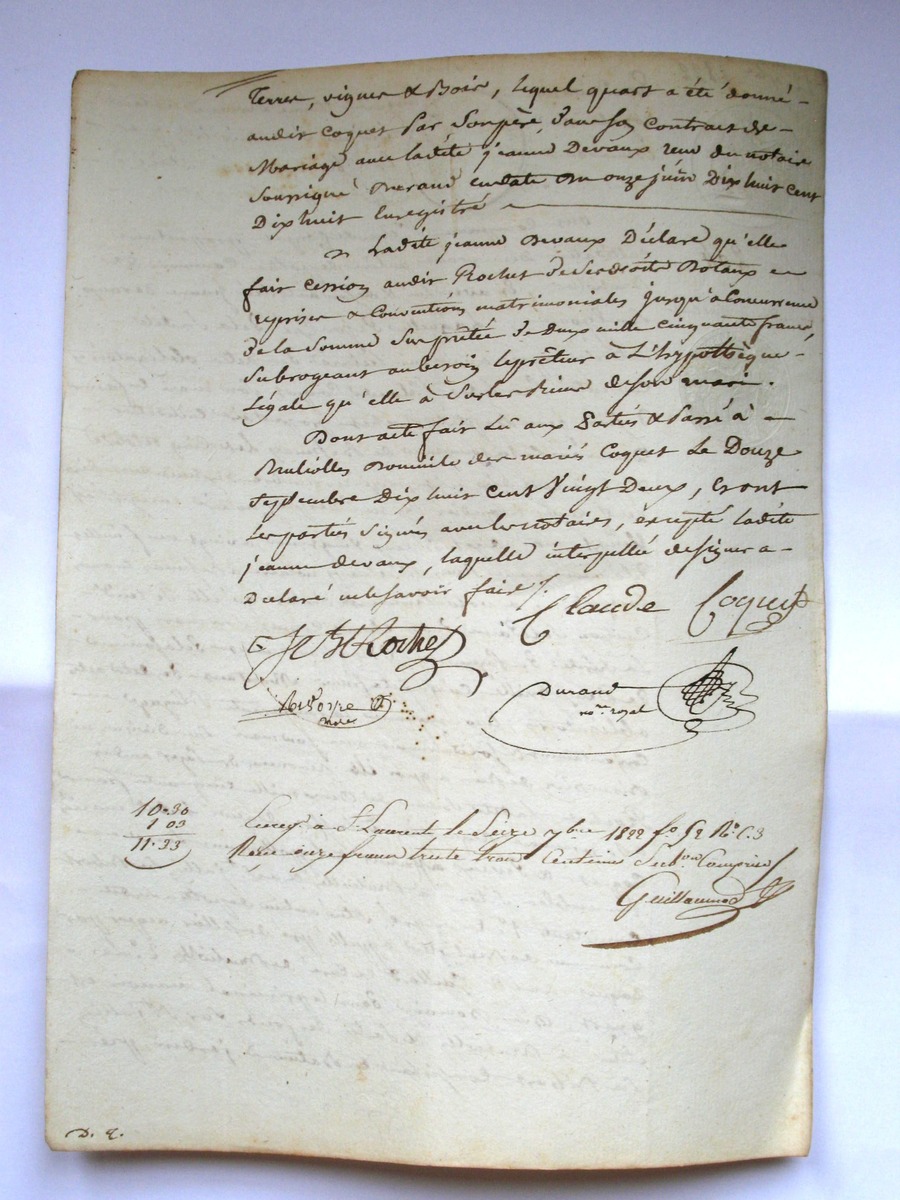 Terres, vignes & Bois, lequel quart a été donné
audit Coquet par son père, dans son Contrat de
Mariage avec ladite jeanne Devaux reçu du notaire
Soussigné Durand en date du onze juin Dix huit cent
Dix huit Enregistré
Ladite jeanne Devaux Déclare qu'elle
fait cession audit Rochet de ses droits Dotaux
reprises & Conventions matrimoniales jusqu'à Concurrence
de la Somme Sus prêtée de Deux mille cinquante francs,
Subrogeant au besoin le prêteur à L'hypothèque
Légale qu'elle à Sur les Biens de son mari.
Dont acte fait Lû aux Parties & Passé à
Domicile des mariés Coquet Le Douze
Septembre Dix huit cent Vingt Deux, Et ont
Les parties Signés avec les notaires, excepté ladite
jeanne devaux, laquelle interpellée de signer a
Déclaré ne le savoir faire
Claude Coquet
Rochet
Durand
nore royal
10-30
1 03
11-33
Enreg. à St Laurent le Seize 7bre 1822 fo 52 Ro C. 3
Reçu onze francs trente trois Centimes Subon Comprise
Guillaumod
D. q.